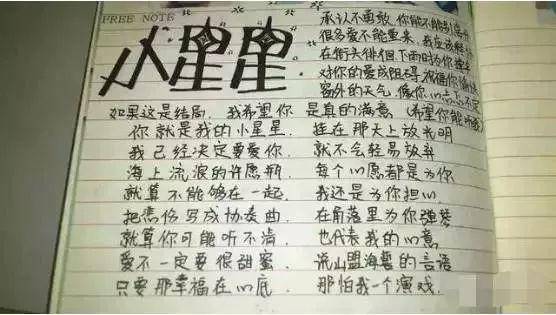 FREE NOTE
小星星
承认不勇敢,你能不能别离开
很多爱不能重来,我应该释怀
在街头徘徊下雨时为你撑
对你的爱成阻碍 祝你愉快
窗外的天气 像你心忐忑不定
如果这是结局,我希望你 是真的满意 (希望你能听
你就是我的小星星 挂在那天上放光明
我已经决定要爱你 就不会轻易放弃
海上流浪的许愿瓶 每个心愿都是为你
就算不能够在一起 我还是为你担心
把悲伤写成协奏曲 在角落里为你弹琴
就算你可能听不清 也代表我的心意
爱不一定要很甜蜜 说山盟海誓的言语
只要那幸福在心底 那怕我一个演戏